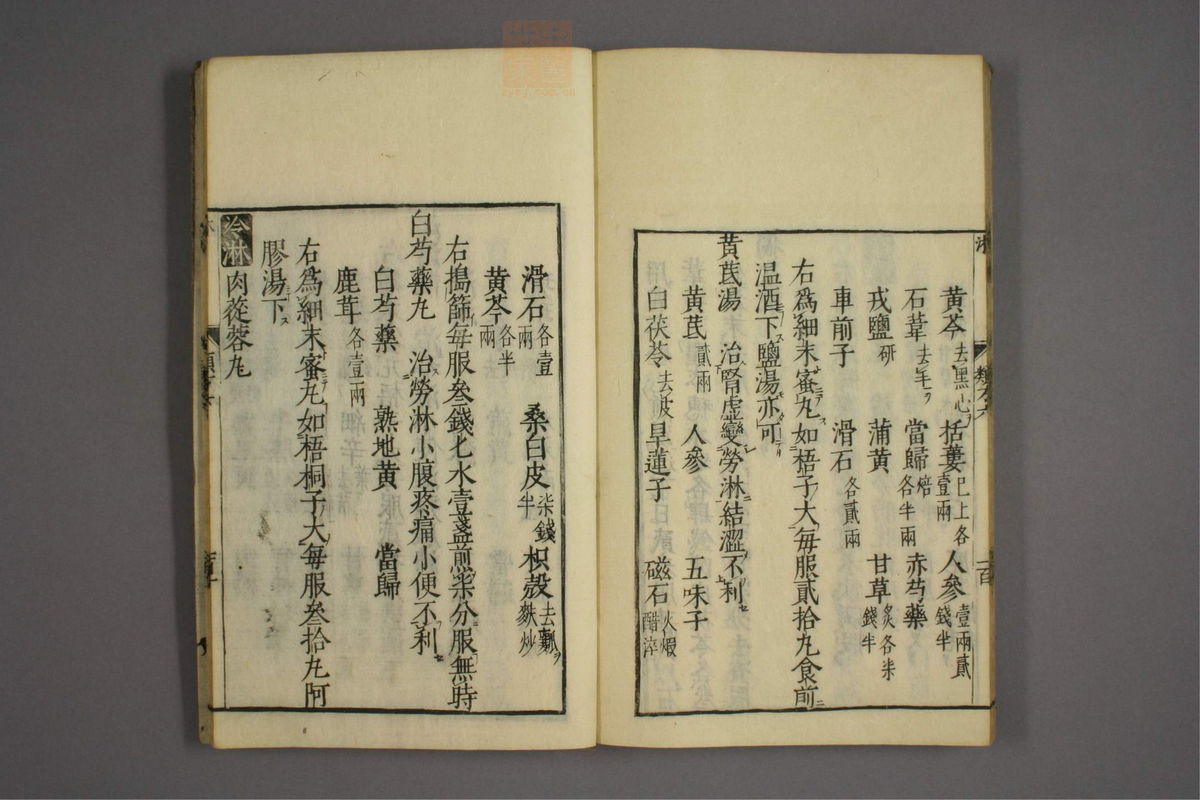 黄芩去黒心ヲ 括蔞巳上各壹兩 人參壹兩貳錢半
石葦去毛ヲ 當歸焙各半兩 赤芍藥
戎鹽研 蒲黄 甘草炙各柒錢半
車前子 滑石各貳兩
右為細末蜜丸如梧子大毎服貳拾丸食前
温酒下鹽湯亦可
黄茋湯 治腎虛變勞淋結澀不利
黄茋貳兩 人參 五味子
白茯苓去皮 旱蓮子 磁石火煆醋淬
滑石各壹兩 桑白皮柒錢半 枳殼去瓤ヲ麩炒
黄芩各半兩
右搗篩每服叄錢匕水壹盞煎柒分服無時
白芍藥丸 治勞淋小腹疼痛小便不利
白芍藥 熟地黄 當歸
鹿茸各壹兩
右為細末蜜丸如梧桐子大每服叄拾丸阿
膠湯下
冷淋 肉蓯蓉丸